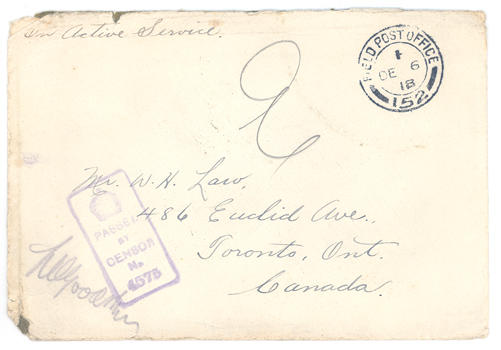 On Active Service.
FIELD POST OFFICE
DE 6
18
152
Mr. W. H. Law,
486 Euclid Ave.,
Toronto, Ont.
Canada.
PASSED
BY
CENSOR
No.
4575